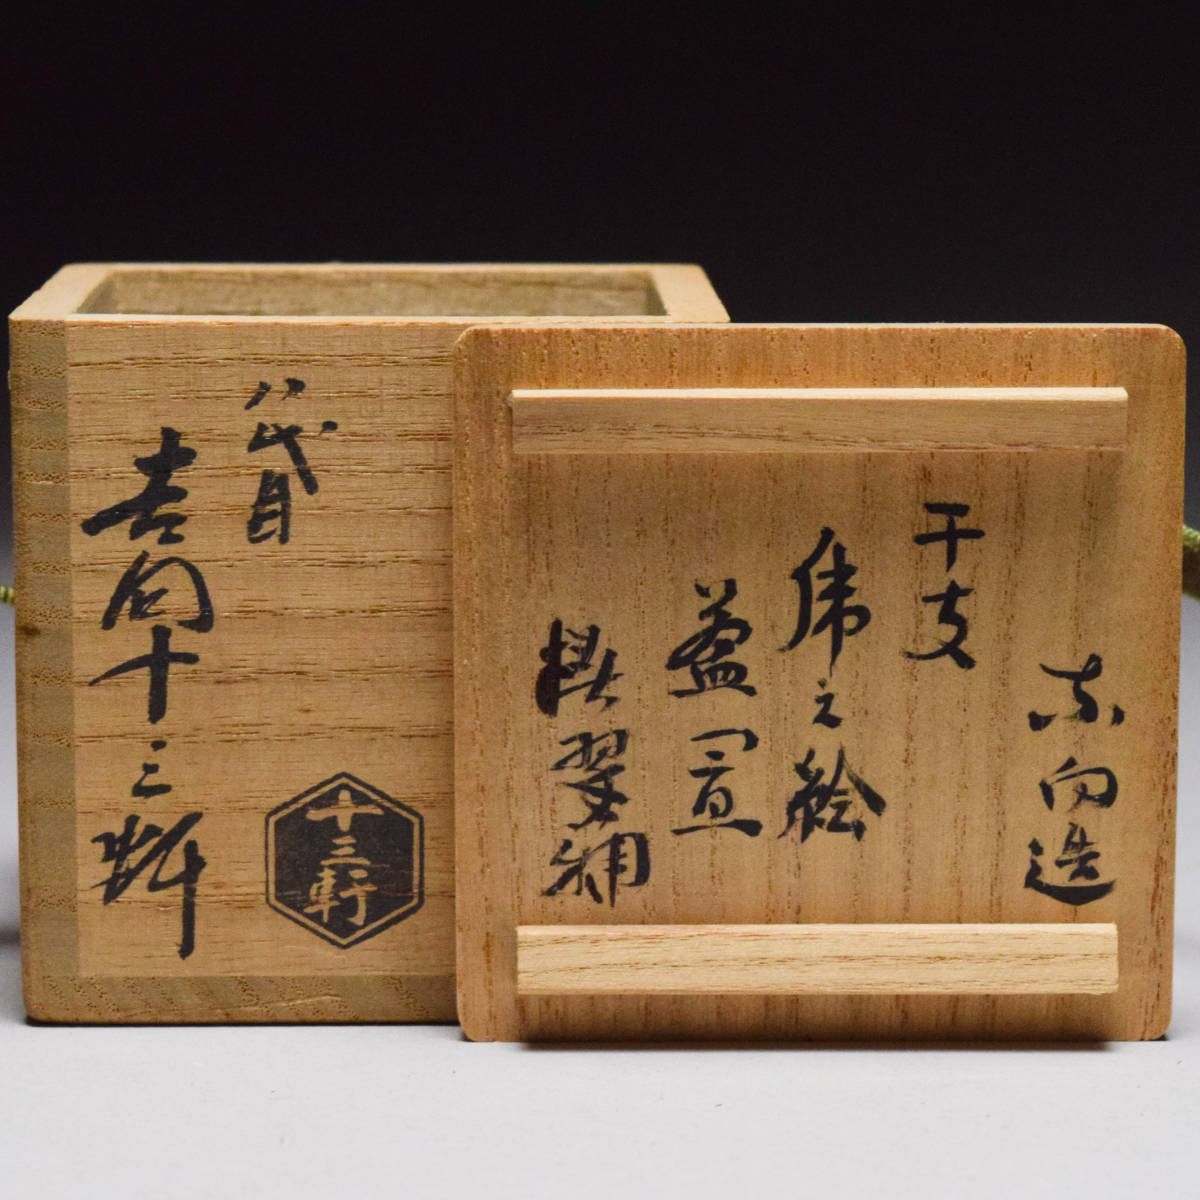 吉向造
干支
虎之絵
蓋置
八代目
吉向十三軒
十三軒